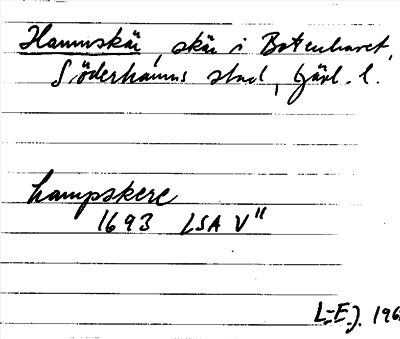 Hamnskär, skär i Bottenhavet,
Söderhamns stad, Gävl. l.
hampskere
1693 LSA V"
L-E.J. 196